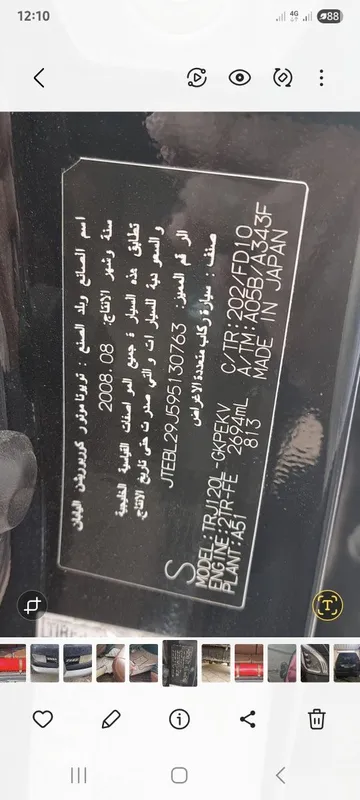 12:10
4G
88
اسم الصانع وبلد الصنع : تويوتا موتور كوربوريشن اليابان
سنة وشهر الانتاج: 2008.08
تطابق هذه السيارة جميع المواصفات القياسية الخليجية
والسعودية للسيارات والتي صدرت حتى تاريخ الانتاج.
الرقم المميز: JTEBL29J595130763
صنف : سيارة ركاب متعددة الاغراض
S
MODEL:TRJ120L-GKPEKV C/TR:202/FD10
ENGINE:2TR-FE 2694mL A/TM:A05B/A343F
PLANT:A51 813 MADE IN JAPAN
T